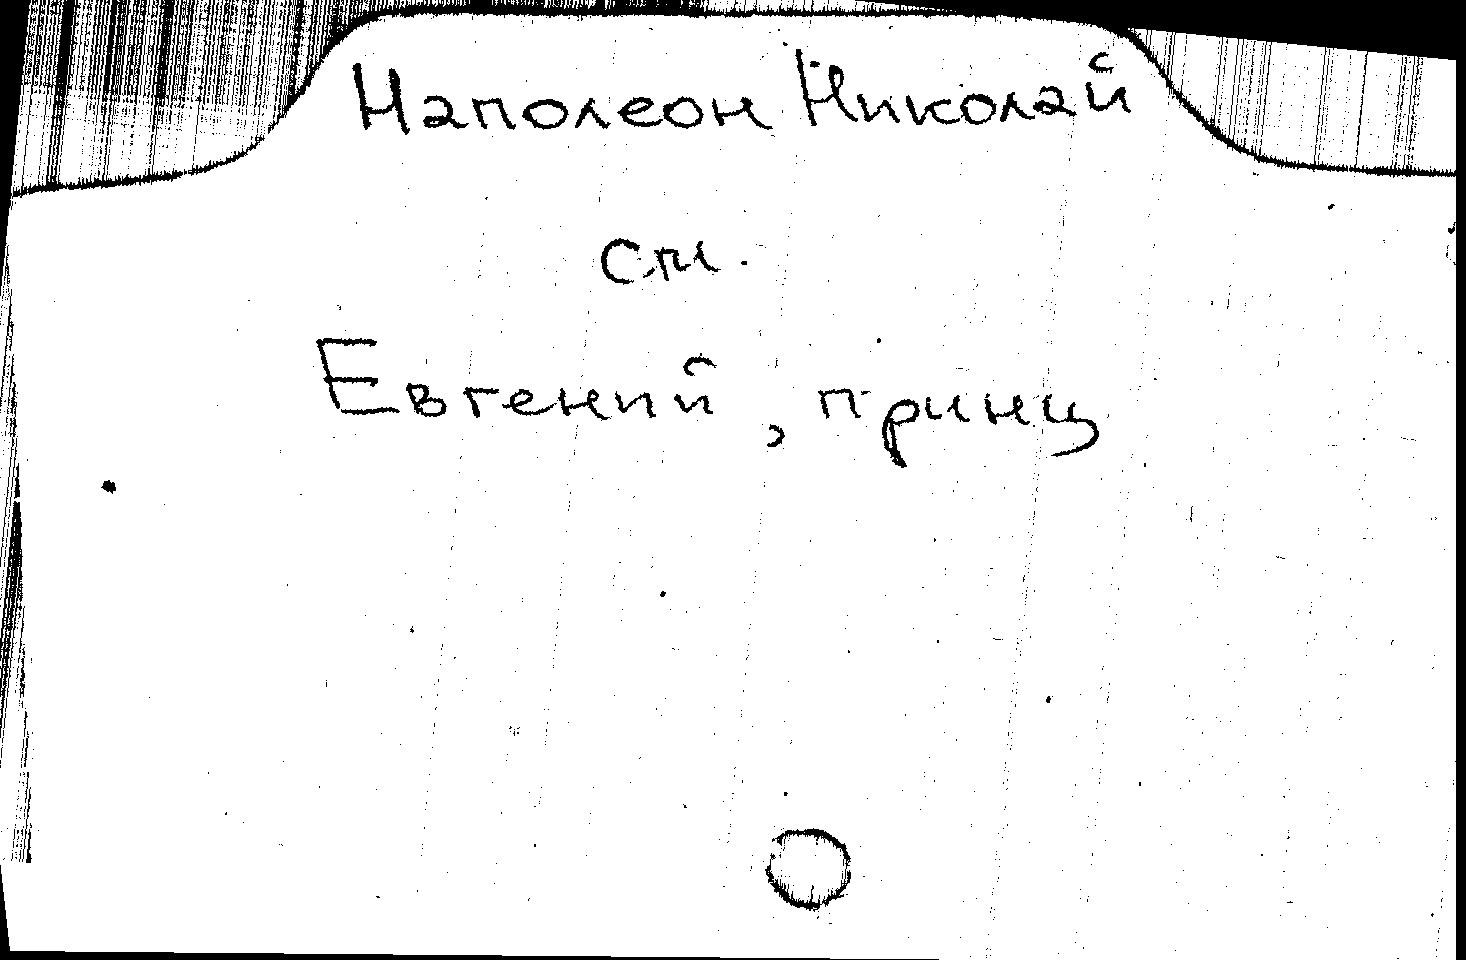 Наполеон Николай
см.
Евгений, принц